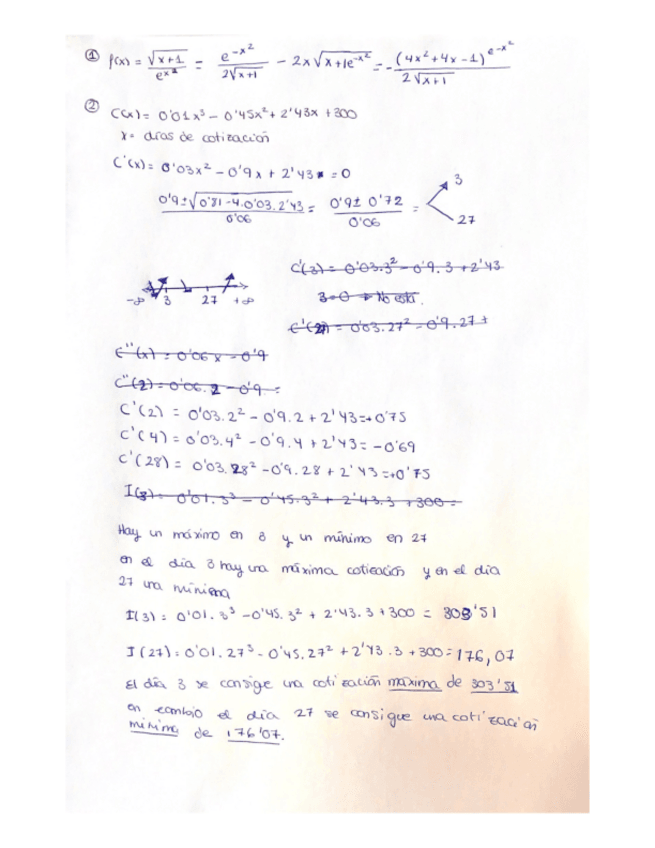 ① f(x) = √x+1 / e^x² = e^-x² / 2√x+1 - 2x√x+1 e^-x² = - (4x²+4x-1)e^-x² / 2√x+1
② C(x) = 0'01x³ - 0'45x² + 2'43x + 300
x = días de cotización
C'(x) = 0'03x² - 0'9x + 2'43 = 0
0'9 ± √0'81 - 4·0'03·2'43 / 0'06 = 0'9 ± 0'72 / 0'06 = 3
27
C'(3) = 0'03·3² - 0'9·3 + 2'43
-∞ 3 27 +∞
3=0 → No está.
C'(27) = 0'03·27² - 0'9·27 +
C''(x) = 0'06x - 0'9
C''(2) = 0'06·2 - 0'9 =
C'(2) = 0'03·2² - 0'9·2 + 2'43 = +0'75
C'(4) = 0'03·4² - 0'9·4 + 2'43 = -0'69
C'(28) = 0'03·28² - 0'9·28 + 2'43 = +0'75
I(3) = 0'01·3³ - 0'45·3² + 2'43·3 + 300 =
Hay un máximo en 3 y un mínimo en 27
en el día 3 hay una máxima cotización y en el día
27 una mínima
I(3) = 0'01·3³ - 0'45·3² + 2'43·3 + 300 = 303'51
I(27) = 0'01·27³ - 0'45·27² + 2'43·3 + 300 = 176,07
El día 3 se consige una cotización máxima de 303'51
en cambio el día 27 se consigue una cotización
mínima de 176'07.